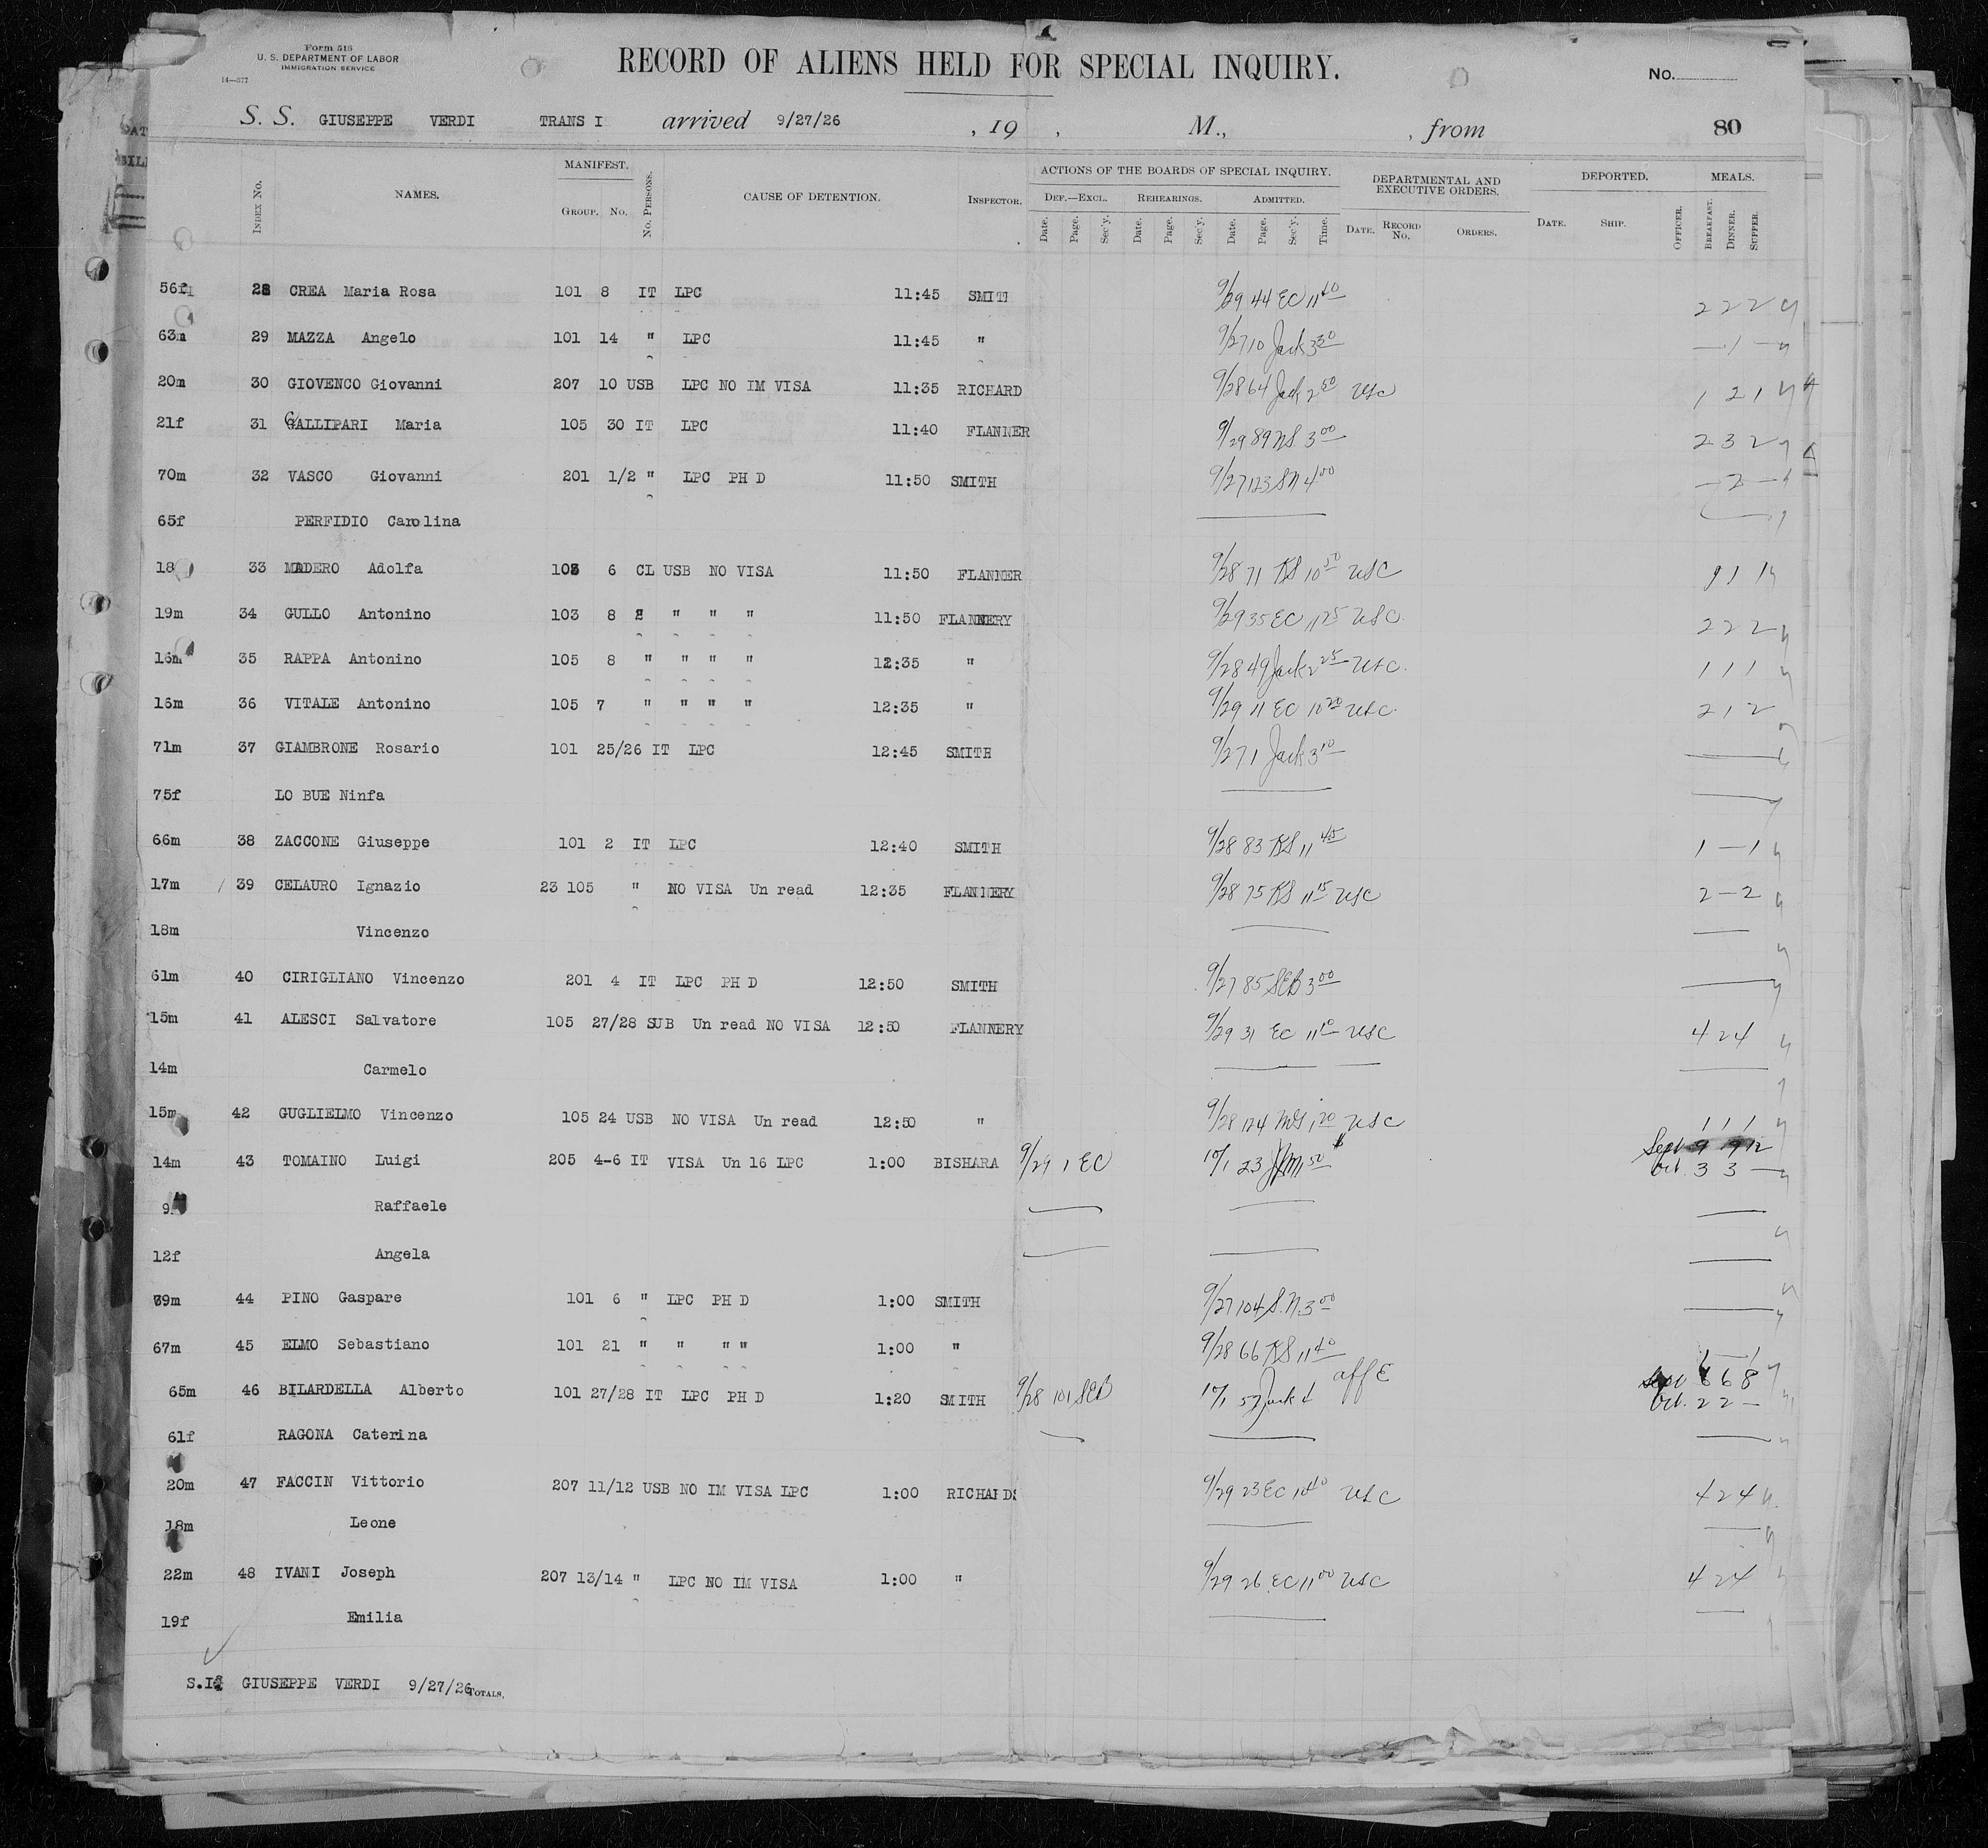 Form 518
U. S. DEPARTMENT OF LABOR
IMMIGRATION SERVICE
14—377
RECORD OF ALIENS HELD FOR SPECIAL INQUIRY.
No.
S. S. GIUSEPPE VERDI TRANS I arrived 9/27/26 , 19 , M., , from 80
INDEX No. NAMES. MANIFEST. GROUP. No. No. PERSONS. CAUSE OF DETENTION. INSPECTOR. ACTIONS OF THE BOARDS OF SPECIAL INQUIRY. DEPARTMENTAL AND EXECUTIVE ORDERS. DEPORTED. MEALS.
DEF.—EXCL. REHEARINGS. ADMITTED.
Date. Page. Sec'y. Date. Page. Sec'y. Date. Page. Sec'y. Time. DATE. RECORD No. ORDERS. DATE. SHIP. OFFICER. BREAKFAST. DINNER. SUPPER.
56f 28 CREA Maria Rosa 101 8 IT LPC 11:45 SMIT 9/29 44 EC 11 40 2 2 2
63m 29 MAZZA Angelo 101 14 " LPC 11:45 " 9/27 10 Jack 3 30 — 1 —
20m 30 GIOVENCO Giovanni 207 10 USB LPC NO IM VISA 11:35 RICHARD 9/28 64 Jack 2 50 USC 1 2 1
21f 31 CALLIPARI Maria 105 30 IT LPC 11:40 FLANNER 9/29 89 NS 3 00 2 3 2
70m 32 VASCO Giovanni 201 1/2 " LPC PH D 11:50 SMITH 9/27 123 SN 4 00 — 2 —
65f PERFIDIO Carolina
18 33 MADERO Adolfa 103 6 CL USB NO VISA 11:50 FLANNER 9/28 71 RS 10 50 USC 1 1 1
19m 34 GULLO Antonino 103 8 " " " 11:50 FLANNERY 9/29 35 EC 11 25 USC. 2 2 2
16m 35 RAPPA Antonino 105 8 " " " " 12:35 " 9/28 49 Jack 2 25 USC. 1 1 1
16m 36 VITALE Antonino 105 7 " " " " 12:35 " 9/29 11 EC 10 20 USC. 2 1 2
71m 37 GIAMBRONE Rosario 101 25/26 IT LPC 12:45 SMITH 9/27 1 Jack 3 10
75f LO BUE Ninfa
66m 38 ZACCONE Giuseppe 101 2 IT LPC 12:40 SMITH 9/28 83 RS 11 45 1 — 1
17m 39 CELAURO Ignazio 23 105 " NO VISA Un read 12:35 FLANNERY 9/28 75 RS 11 15 USC 2 — 2
18m Vincenzo
61m 40 CIRIGLIANO Vincenzo 201 4 IT LPC PH D 12:50 SMITH 9/27 85 SEB 3 00
15m 41 ALESCI Salvatore 105 27/28 SUB Un read NO VISA 12:50 FLANNERY 9/29 31 EC 11 10 USC 4 2 4
14m Carmelo
15m 42 GUGLIELMO Vincenzo 105 24 USB NO VISA Un read 12:50 " 9/28 124 1 20 USC 1 1 1
14m 43 TOMAINO Luigi 205 4-6 IT VISA Un 16 LPC 1:00 BISHARA 9/29 1 EC 10/1 23 Sept 9 9 12
Oct. 3 3 —
9 Raffaele
12f Angela
79m 44 PINO Gaspare 101 6 " LPC PH D 1:00 SMITH 9/27 104 S.N. 3 00
67m 45 ELMO Sebastiano 101 21 " " " " 1:00 " 9/28 66 RS 11 40 1 — 1
65m 46 BILARDELLA Alberto 101 27/28 IT LPC PH D 1:20 SMITH 9/28 101 SEB 10/1 57 Jack aff E Sept 6 6 8
Oct. 2 2 —
61f RAGONA Caterina
20m 47 FACCIN Vittorio 207 11/12 USB NO IM VISA LPC 1:00 RICHARDS 9/29 23 EC 10 40 USC 4 2 4
18m Leone
22m 48 IVANI Joseph 207 13/14 " LPC NO IM VISA 1:00 " 9/29 26 EC 11 00 USC 4 2 4
19f Emilia
S.I. GIUSEPPE VERDI 9/27/26 TOTALS.